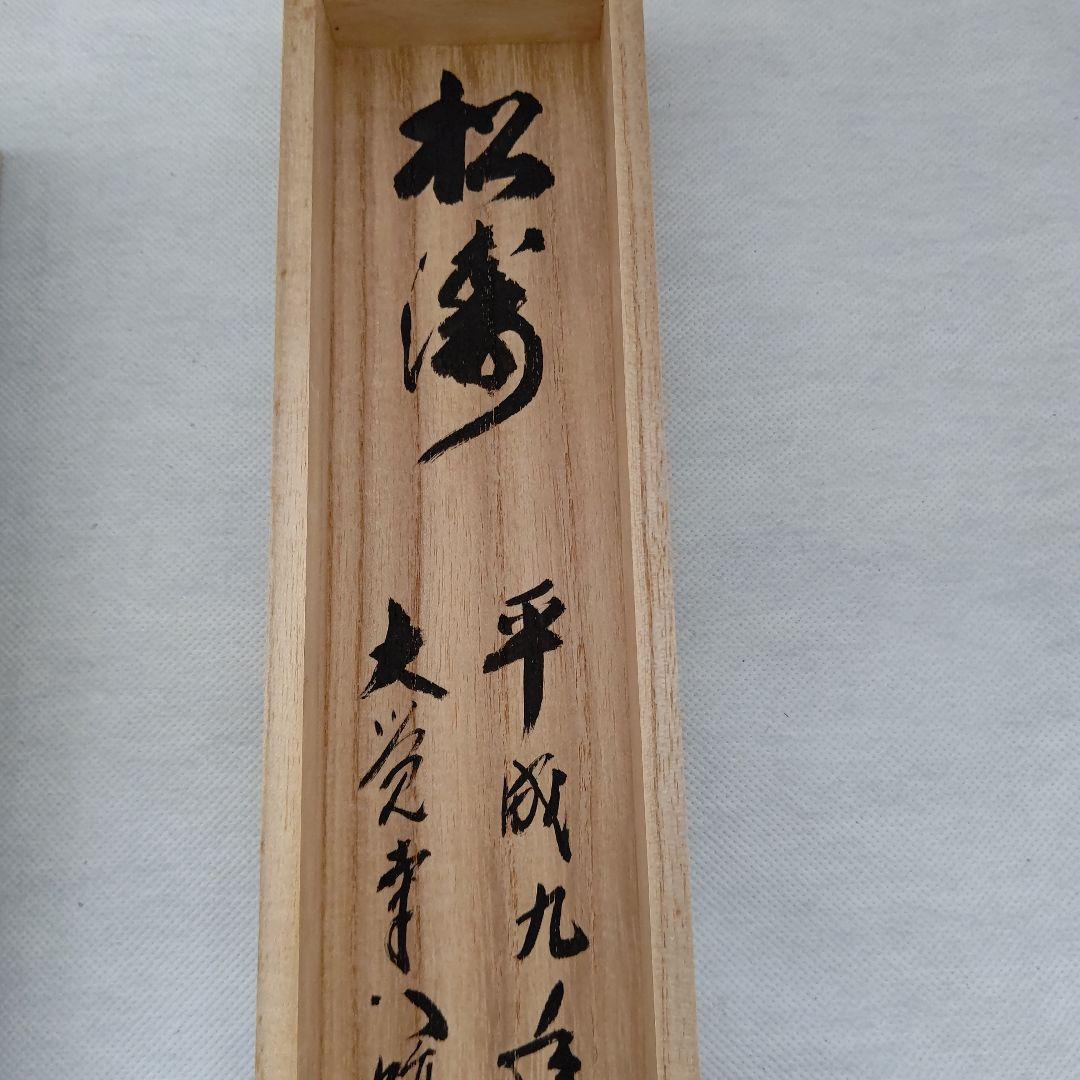 松濤
平成九年
大覚
八